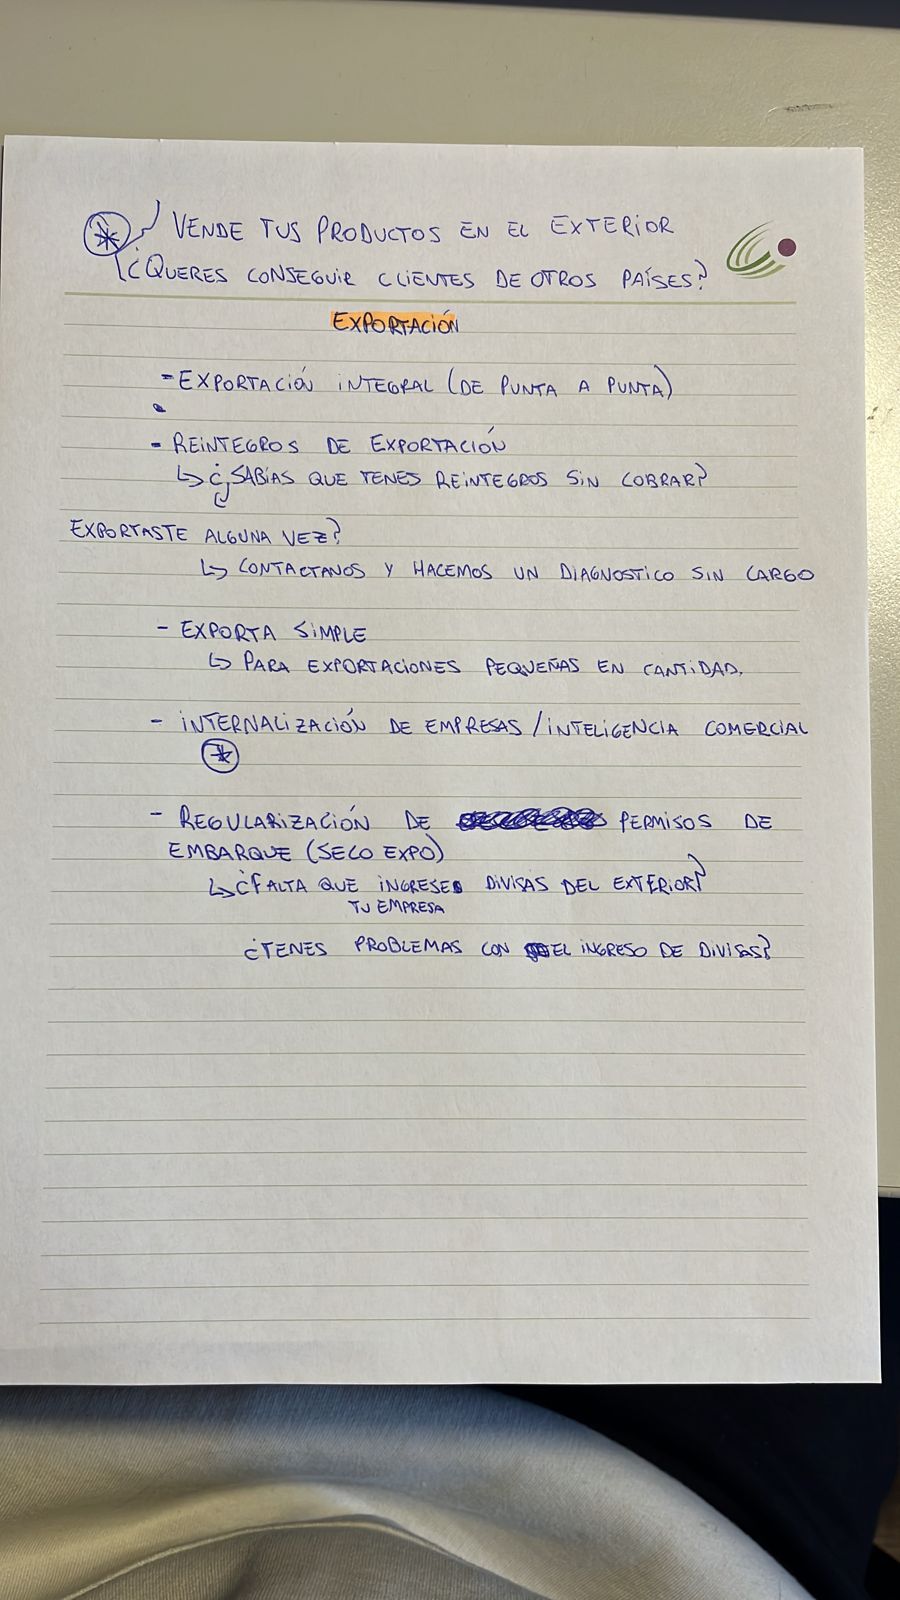 VENDE TUS PRODUCTOS EN EL EXTERIOR
¿QUERES CONSEGUIR CLIENTES DE OTROS PAÍSES?
EXPORTACIÓN
- EXPORTACIÓN INTEGRAL (DE PUNTA A PUNTA)
- REINTEGROS DE EXPORTACIÓN
↳ ¿SABÍAS QUE TENES REINTEGROS SIN COBRAR?
EXPORTASTE ALGUNA VEZ?
↳ CONTACTANOS Y HACEMOS UN DIAGNOSTICO SIN CARGO
- EXPORTA SIMPLE
↳ PARA EXPORTACIONES PEQUEÑAS EN CANTIDAD.
- INTERNALIZACIÓN DE EMPRESAS / INTELIGENCIA COMERCIAL
*
- REGULARIZACIÓN DE PERMISOS DE
EMBARQUE (SECO EXPO)
↳ ¿FALTA QUE INGRESE DIVISAS DEL EXTERIOR?
TU EMPRESA
¿TENES PROBLEMAS CON EL INGRESO DE DIVISAS?